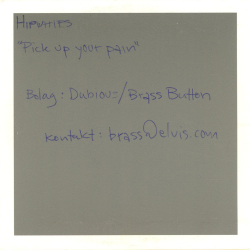 Hipshtips
"Pick up your pain"
Bolag: Dubious/Brass Button
kontakt: brass@elvis.com